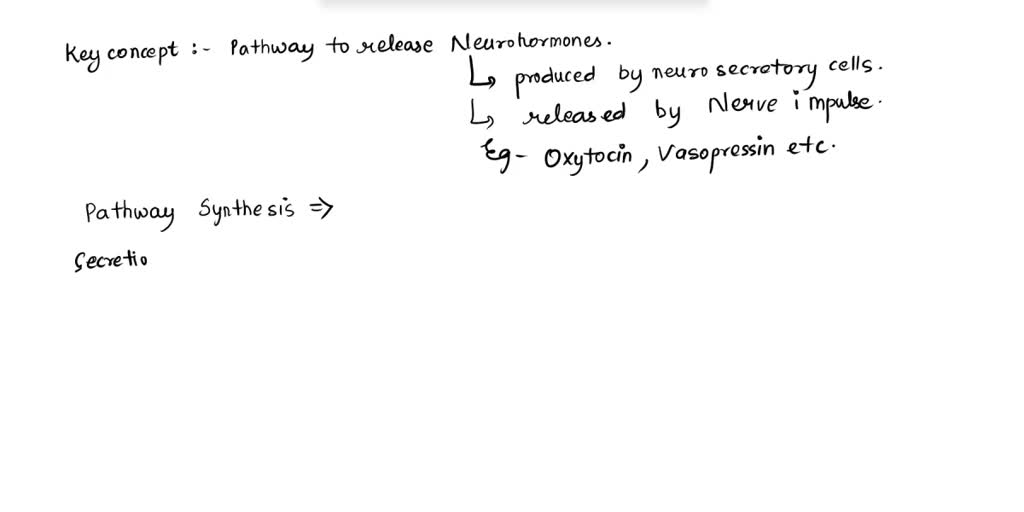 Key concept :- Pathway to release Neurohormones.
↳ produced by neuro secretory cells.
↳ released by Nerve impulse.
Eg- Oxytocin, Vasopressin etc.
Pathway Synthesis ⇒
Secretio